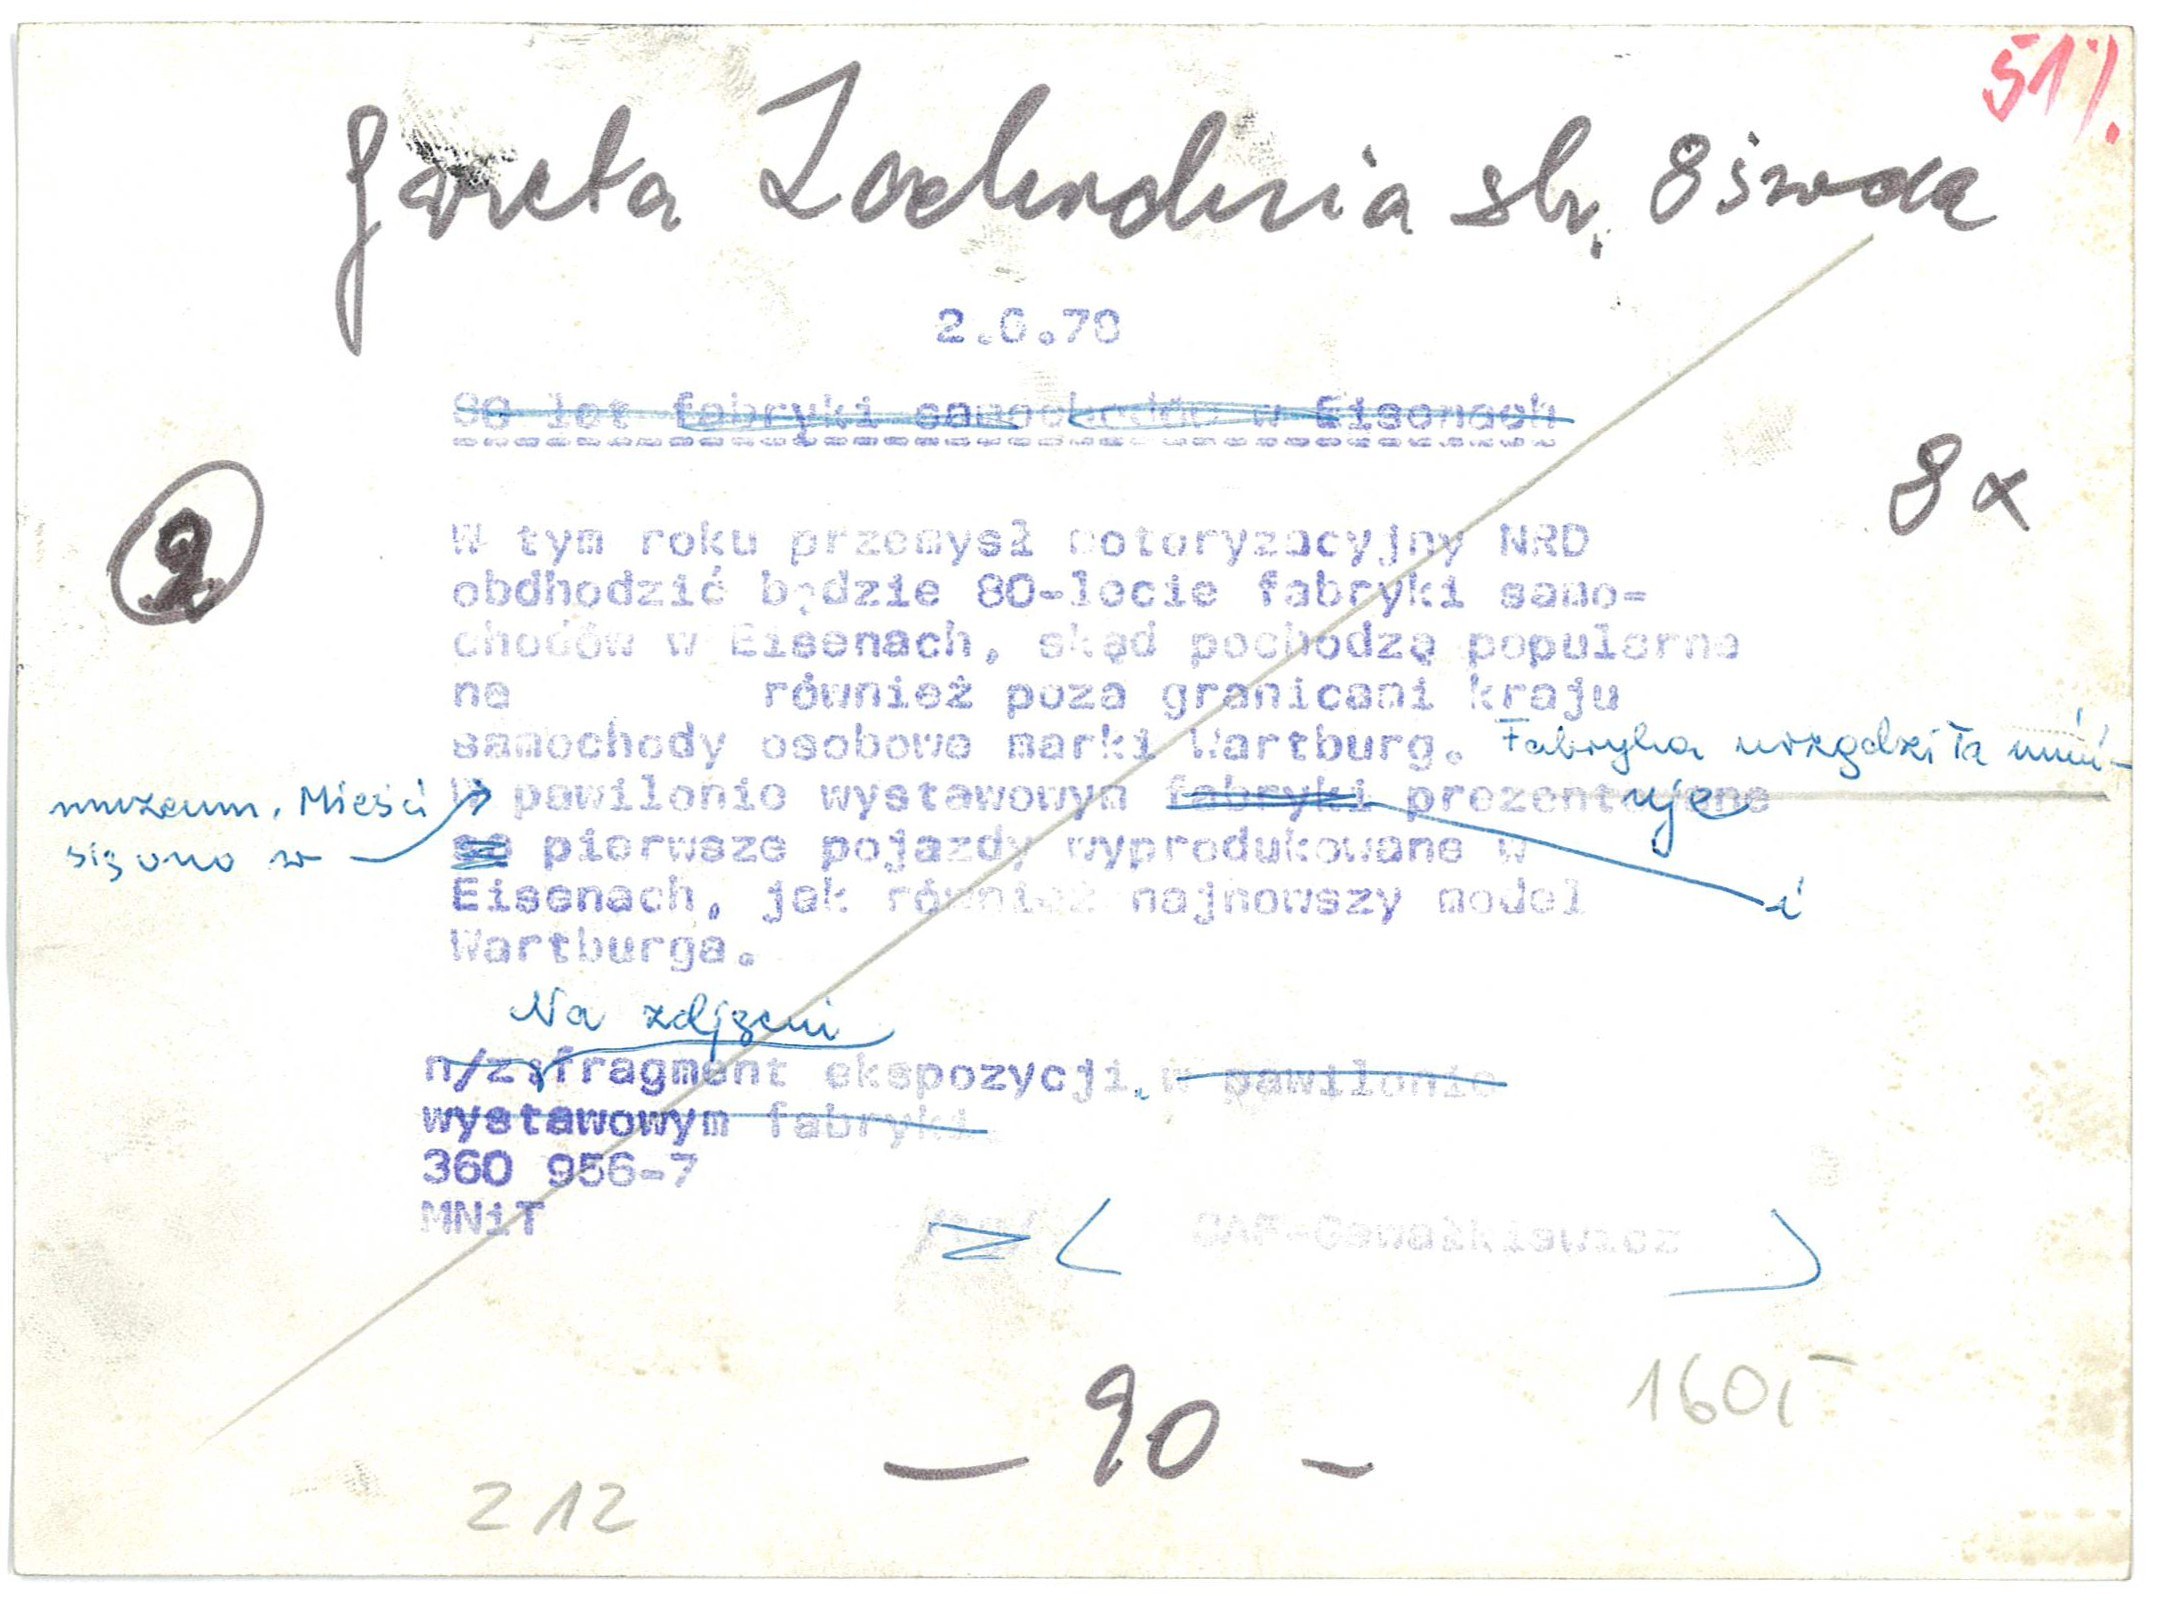 51%
Gazeta Zachodnia str. 8 środa
2.6.70
80 lat fabryki samochodów w Eisenach
8x
2
W tym roku przemysł motoryzacyjny NRD
obdhodzić będzie 80-lecie fabryki samo=
chodów w Eisenach, skąd pochodzą popularne
na również poza granicami kraju
samochody osobowe marki Wartburg. Fabryka urządziła
muzeum. Mieści
się ono w
W pawilonie wystawowym fabryki prezentowane
uje
są pierwsze pojazdy wyprodukowane w
i
Eisenach, jak również najnowszy model
Wartburga.
Na zdjęciu
n/z:fragment ekspozycji w pawilonie
wystawowym fabryki.
360 956-7
MNiT
CAF-Gawałkiewicz
160,-
— 90 —
212